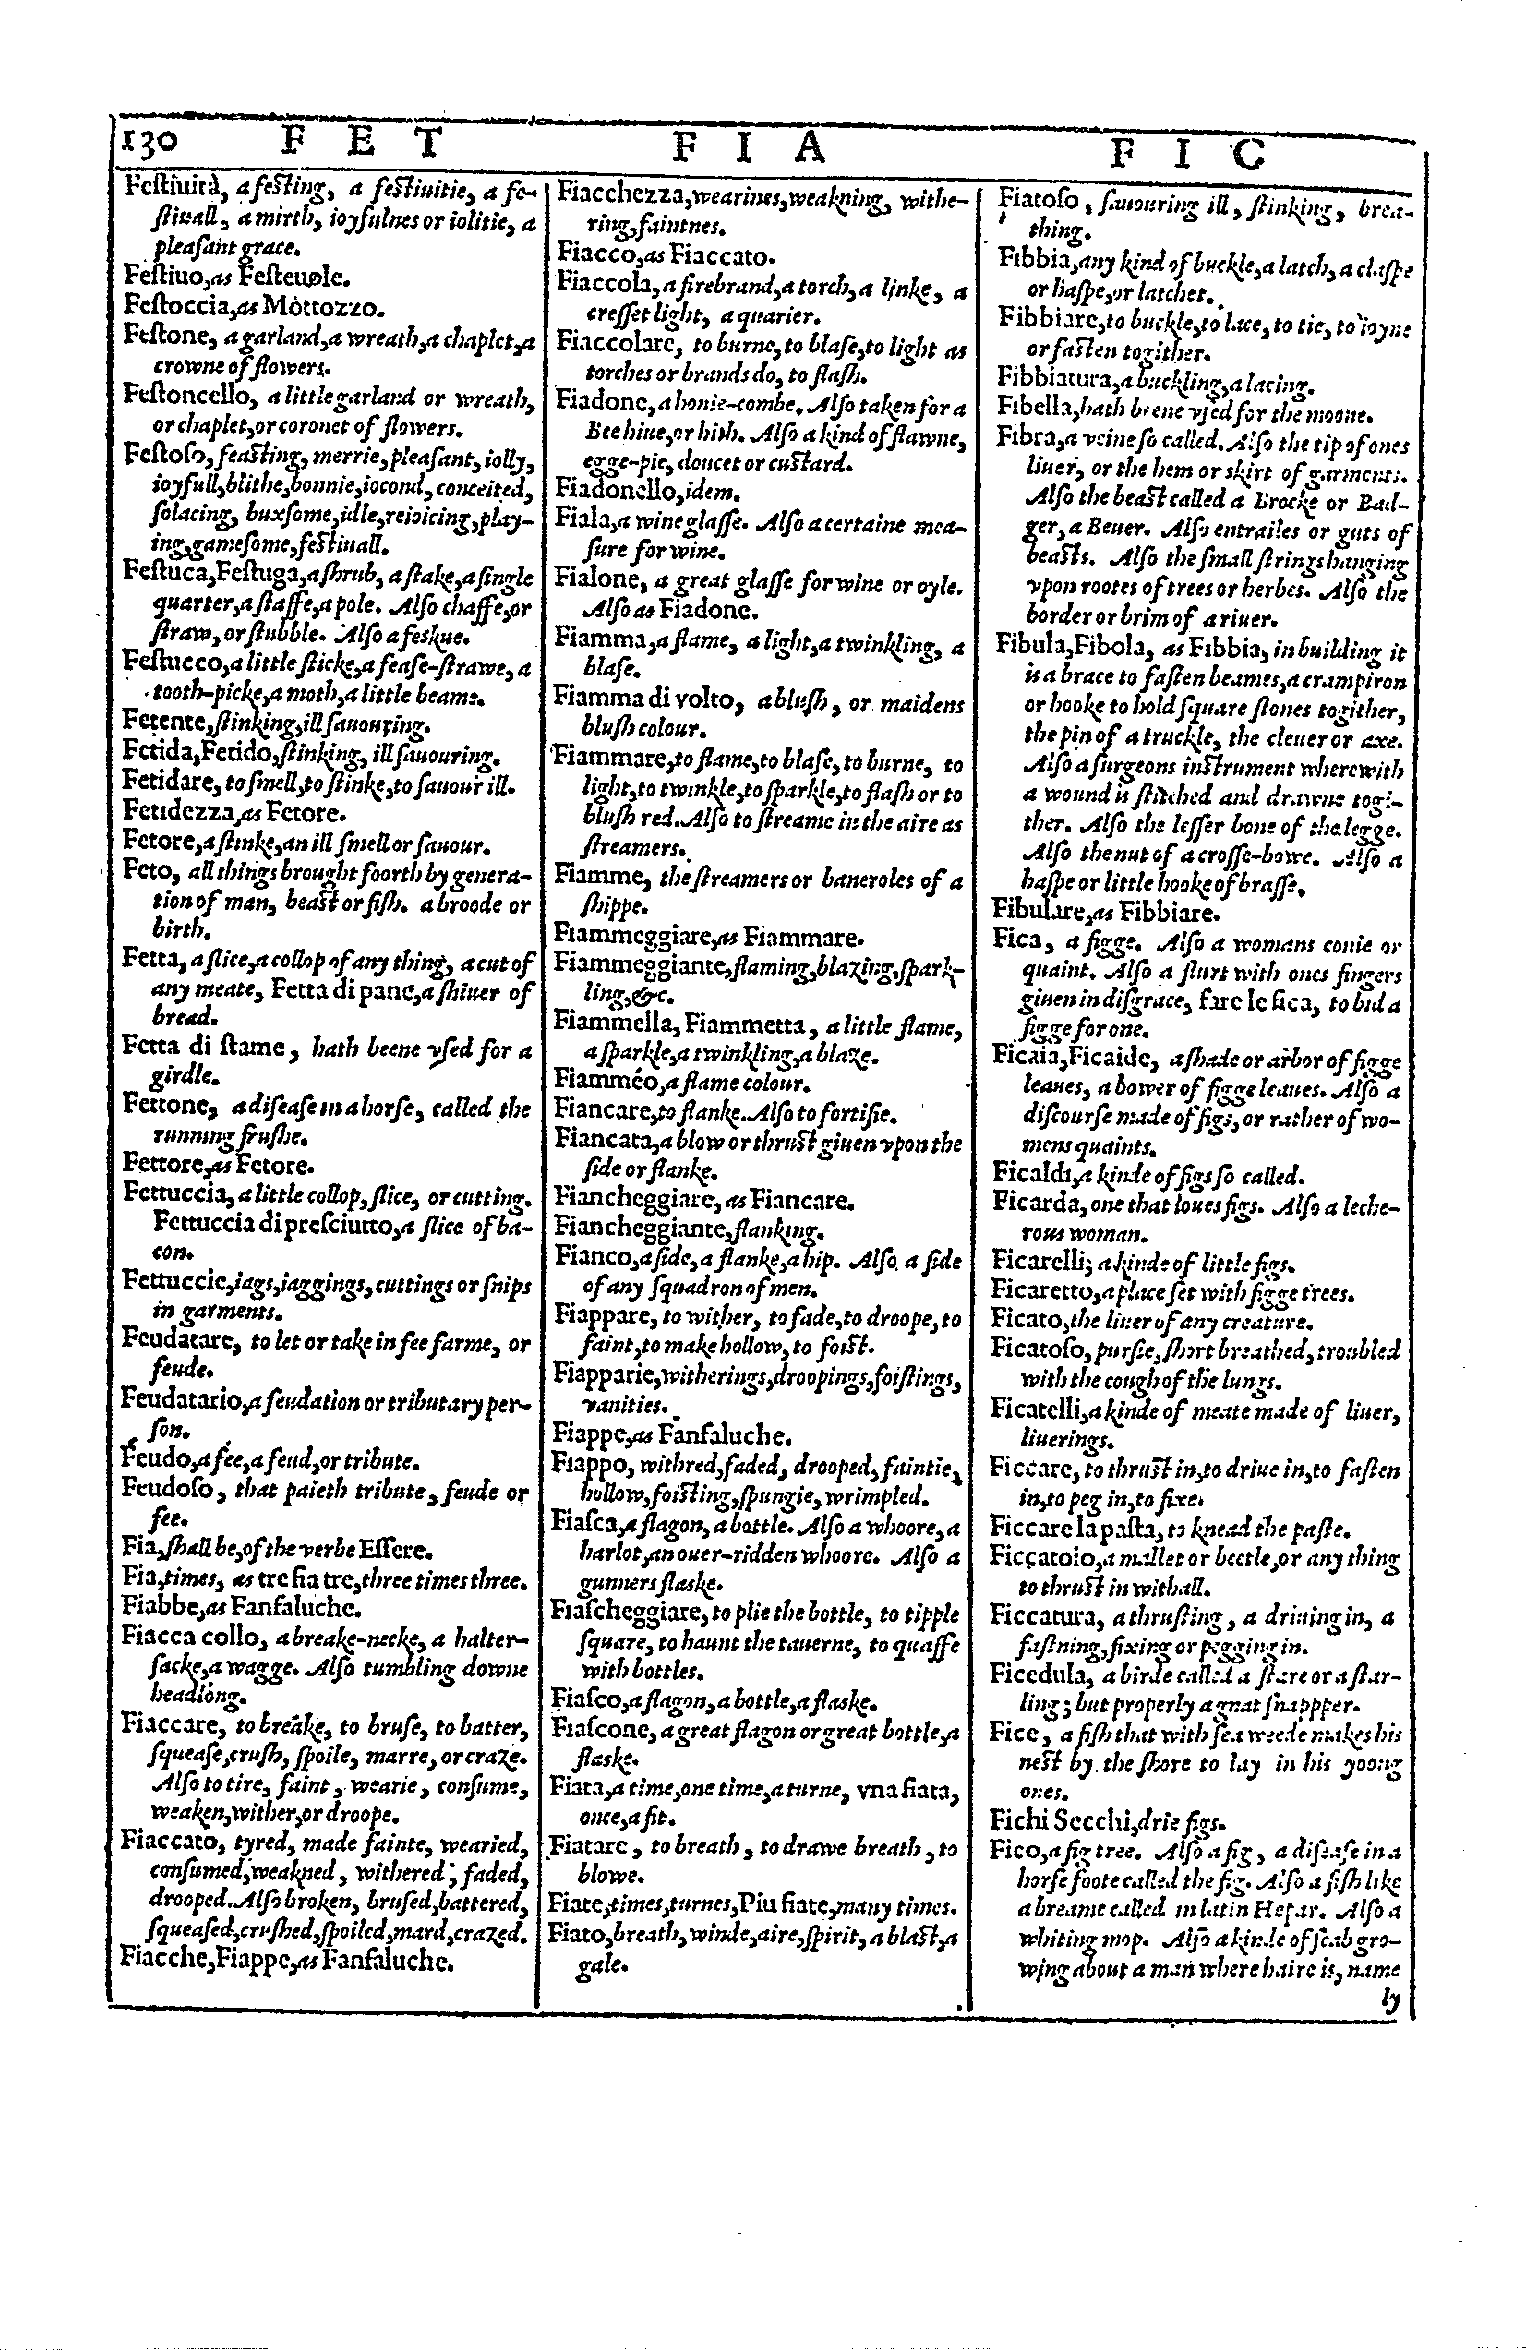 130 F E T F I A F I C
Feſtiuità, a feſting, a feſtiuitie, a fe-
ſtiuall, a mirth, ioyfulnes or iolitie, a
pleaſant grace.
Feſtiuo, as Feſteuole.
Feſtoccia, as Mottozzo.
Feſtone, a garland, a wreath, a chaplet, a
crowne of flowers.
Feſtoncello, a little garland or wreath,
or chaplet, or coronet of flowers.
Feſtoſo, feaſting, merrie, pleaſant, iolly,
ioyfull, blithe, bonnie, iocond, conceited,
ſolacing, buxſome, idle, reioicing, play-
ing, gameſome, feſtiuall.
Feſtuca, Feſtuga, a ſhrub, a ſtake, a ſingle
quarter, a ſtaffe, a pole. Alſo chaffe, or
ſtraw, or ſtubble. Alſo a feskue.
Feſtucco, a little ſticke, a feaſe-ſtrawe, a
tooth-picke, a moth, a little beame.
Fetente, ſtinking, ill ſauouring.
Fetida, Fetido, ſtinking, ill ſauouring.
Fetidare, to ſmell, to ſtinke, to ſauour ill.
Fetidezza, as Fetore.
Fetore, a ſtinke, an ill ſmell or ſauour.
Feto, all things brought foorth by genera-
tion of man, beaſt or fiſh. a broode or
birth.
Fetta, a ſlice, a collop of any thing, a cut of
any meate, Fetta di pane, a ſhiuer of
bread.
Fetta di ſtame, hath beene vſed for a
girdle.
Fettone, a diſeaſe in a horſe, called the
running fruſhe.
Fettore, as Fetore.
Fettuccia, a little collop, ſlice, or cutting.
Fettuccia di preſciutto, a ſlice of ba-
con.
Fettuccie, iags, iaggings, cuttings or ſnips
in garments.
Feudatare, to let or take in fee farme, or
feude.
Feudatario, a feudation or tributary per-
ſon.
Feudo, a fee, a feud, or tribute.
Feudoſo, that paieth tribute, feude or
fee.
Fia, ſhall be, of the verbe Eſſere.
Fia, times, as tre fia tre, three times three.
Fiabbe, as Fanfaluche.
Fiacca collo, a breake-necke, a halter-
ſacke, a wagge. Alſo tumbling downe
headlong.
Fiaccare, to breake, to bruſe, to batter,
ſqueaſe, cruſh, ſpoile, marre, or craze.
Alſo to tire, faint, wearie, conſume,
weaken, wither, or droope.
Fiaccato, tyred, made fainte, wearied,
conſumed, weakned, withered, faded,
drooped. Alſo broken, bruſed, battered,
ſqueaſed, cruſhed, ſpoiled, mard, crazed.
Fiacche, Fiappe, as Fanfaluche.
Fiacchezza, wearines, weakning, withe-
ring, faintnes.
Fiacco, as Fiaccato.
Fiaccola, a firebrand, a torch, a linke, a
creſſet light, a quarier.
Fiaccolare, to burne, to blaſe, to light as
torches or brands do, to flaſh.
Fiadone, a honie-combe. Alſo taken for a
Bee hiue, or hith. Alſo a kind of flawne,
egge-pie, doucet or cuſtard.
Fiadonello, idem.
Fiala, a wine glaſſe. Alſo a certaine mea-
ſure for wine.
Fialone, a great glaſſe for wine or oyle.
Alſo as Fiadone.
Fiamma, a flame, a light, a twinkling, a
blaſe.
Fiamma di volto, a bluſh, or maidens
bluſh colour.
Fiammare, to flame, to blaſe, to burne, to
light, to twinkle, to ſparkle, to flaſh or to
bluſh red. Alſo to ſtreame in the aire as
ſtreamers.
Fiamme, the ſtreamers or baneroles of a
ſhippe.
Fiammeggiare, as Fiammare.
Fiammeggiante, flaming, blazing, ſpark-
ling, &c.
Fiammella, Fiammetta, a little flame,
a ſparkle, a twinkling, a blaze.
Fiamméo, a flame colour.
Fiancare, to flanke. Alſo to fortifie.
Fiancata, a blow or thruſt giuen vpon the
ſide or flanke.
Fiancheggiare, as Fiancare.
Fiancheggiante, flanking.
Fianco, a ſide, a flanke, a hip. Alſo a ſide
of any ſquadron of men.
Fiappare, to wither, to fade, to droope, to
faint, to make hollow, to foiſt.
Fiapparie, witherings, droopings, foiſtings,
vanities.
Fiappe, as Fanfaluche.
Fiappo, withred, faded, drooped, faintie,
hollow, foiſting, ſpungie, wrimpled.
Fiaſca, a flagon, a bottle. Alſo a whoore, a
harlot, an ouer-ridden whoore. Alſo a
gunners flaske.
Fiaſcheggiare, to plie the bottle, to tipple
ſquare, to haunt the tauerne, to quaffe
with bottles.
Fiaſco, a flagon, a bottle, a flaske.
Fiaſcone, a great flagon or great bottle, a
flaske.
Fiata, a time, one time, a turne, vna fiata,
once, a fit.
Fiatare, to breath, to drawe breath, to
blowe.
Fiate, times, turnes, Piu fiate, many times.
Fiato, breath, winde, aire, ſpirit, a blaſt, a
gale.
Fiatoſo, ſauouring ill, ſtinking, brea-
thing.
Fibbia, any kind of buckle, a latch, a claſpe
or haſpe, or latchet.
Fibbiare, to buckle, to lace, to tie, to ioyne
or faſten togither.
Fibbiatura, a buckling, a lacing.
Fibella, hath beene vſed for the moone.
Fibra, a veine ſo called. Alſo the tip of ones
liuer, or the hem or skirt of garments.
Alſo the beaſt called a Brocke or Bad-
ger, a Beuer. Alſo entrailes or guts of
beaſts. Alſo the ſmall ſtrings hanging
vpon rootes of trees or herbes. Alſo the
border or brim of a riuer.
Fibula, Fibola, as Fibbia, in building it
is a brace to faſten beames, a crampiron
or hooke to hold ſquare ſtones togither,
the pin of a truckle, the cleuer or axe.
Alſo a ſurgeons inſtrument wherewith
a wound is ſtitched and drawne togi-
ther. Alſo the leſſer bone of the legge.
Alſo the nut of a croſſe-bowe. Alſo a
haſpe or little hooke of braſſe.
Fibulare, as Fibbiare.
Fica, a figge. Alſo a womans conie or
quaint. Alſo a flurt with ones fingers
giuen in diſgrace, fare le fica, to bid a
figge for one.
Ficaia, Ficaide, a ſhade or arbor of figge
leaues, a bower of figge leaues. Alſo a
diſcourſe made of figs, or rather of wo-
mens quaints.
Ficaldi, a kinde of figs ſo called.
Ficarda, one that loues figs. Alſo a leche-
rous woman.
Ficarelli, a kinde of little figs.
Ficaretto, a place ſet with figge trees.
Ficato, the liuer of any creature.
Ficatoſo, purſie, ſhort breathed, troubled
with the cough of the lungs.
Ficatelli, a kinde of meate made of liuer,
liuerings.
Ficcare, to thruſt in, to driue in, to faſten
in, to peg in, to fixe.
Ficcare la paſta, to knead the paſte.
Ficcatoio, a mallet or beetle, or any thing
to thruſt in withall.
Ficcatura, a thruſting, a driuing in, a
faſtning, fixing or pegging in.
Ficedula, a birde called a ſtare or a ſtar-
ling; but properly a gnat ſnappper.
Fice, a fiſh that with ſea weede makes his
neſt by the ſhore to lay in his yoong
ones.
Fichi Secchi, drie figs.
Fico, a fig tree. Alſo a fig, a diſeaſe in a
horſe foote called the fig. Alſo a fiſh like
a breame called in latin Hepar. Alſo a
whiting mop. Alſo a kinde of ſcab gro-
wing about a man where haire is, name
ly